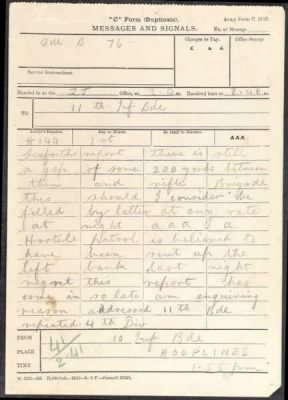 "C" Form (Duplicate).
Army Form C. 2123.
MESSAGES AND SIGNALS.
No. of Message
SM B 76
Charges to Pay.
£ s. d.
Office Stamp.
Service Instructions.
Handed in at the 2J Office, at Received here at
TO 11th Inf Bde
Sender's Number. Day of Month. In reply to Number. AAA
H144 1st
Seaforths report there is still
a gap of some 200 yards between
them and rifle Brigade
this should I consider be
filled by latter at any rate
at night aaa a
Hostile Patrol is believed to
have been sent up the
left bank last night
regret this report has
come in so late am enquiring
reason addressed 11th Bde
repeated 4th Div
FROM 10 Inf Bde
PLACE HOUPLINES
TIME 1.55 pm
41
2.41